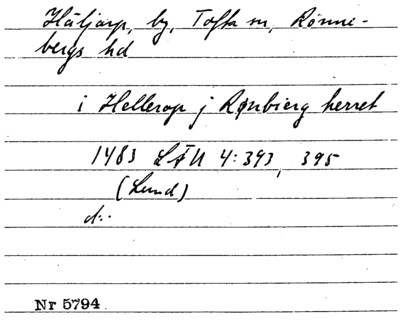 Häljarp, by, Tofta sn, Rönne-
bergs hd
i Hellerop j Rønbierg herret
1483 LÄU 4:393, 395
(Lund)
d:o
Nr 5794